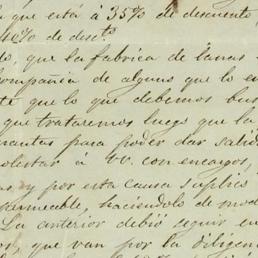 que está á 35% de descuento,
40% de desc^to
do, que la fabrica de lanas
compañia de alguno que lo en
te que lo que debemos bus
que trataremos luego que la
mantas para poder dar salid
olestar á vv. con encargos,
as y por esta causa suplico
ermeable, haciéndolo de mod
La anterior debió seguir en
or, que van por la diligen